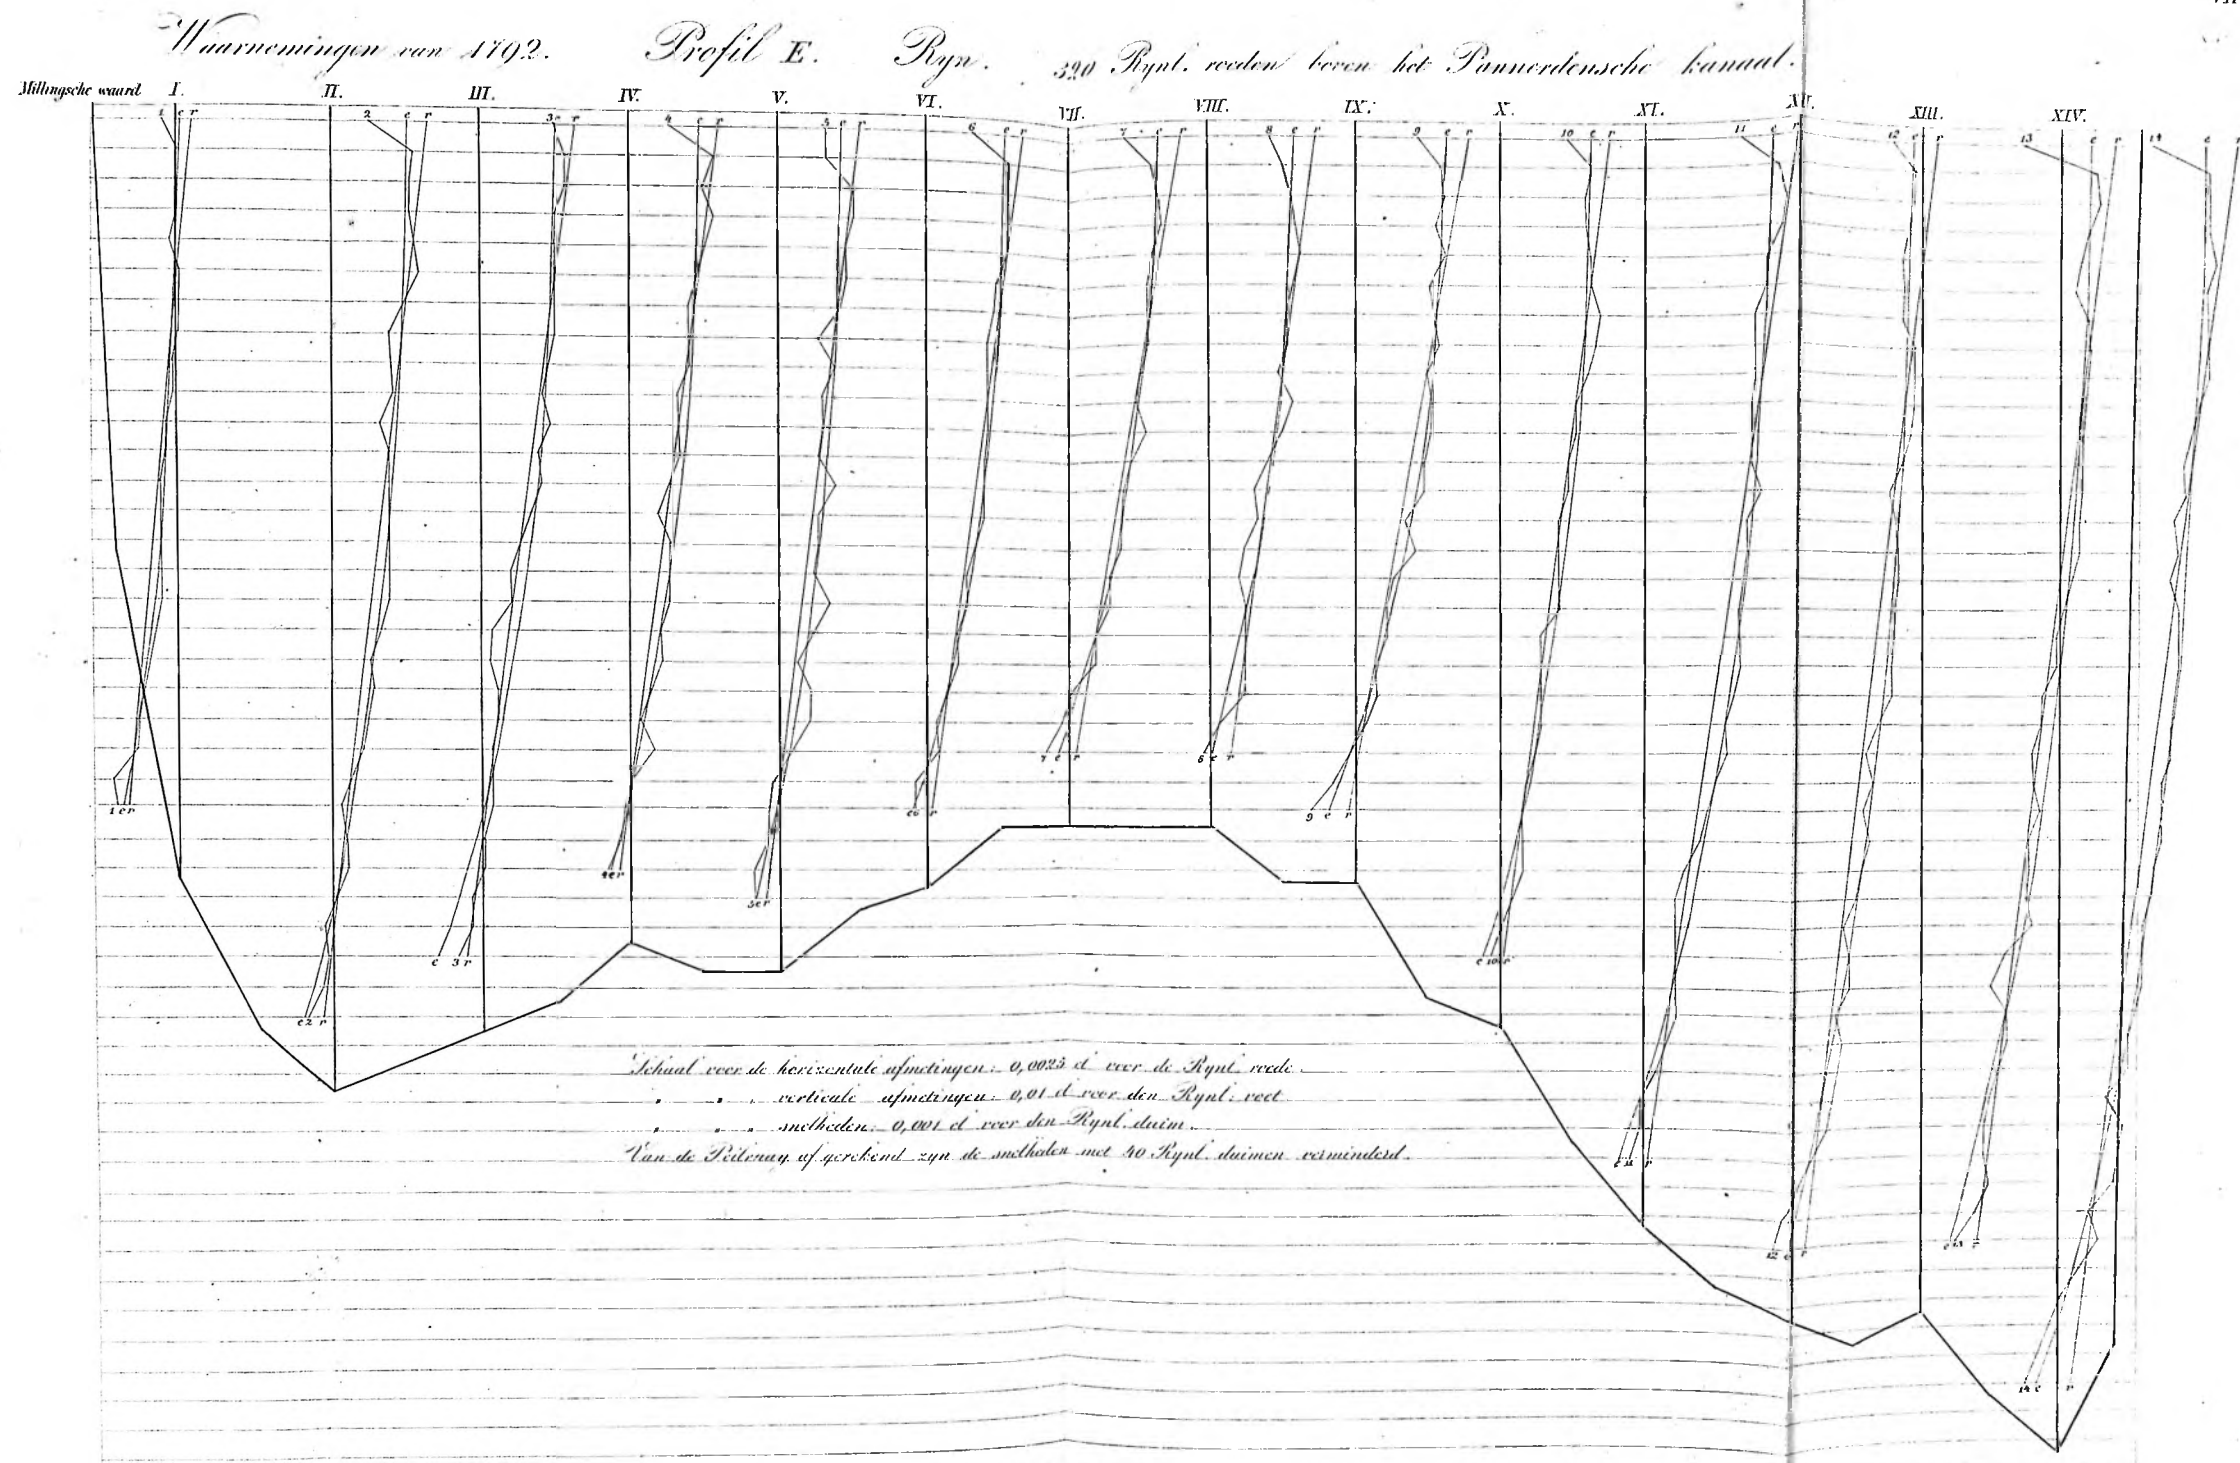 Waarnemingen van 1792. Profil E. Ryn. 320 Rynl. roeden boven het Pannerdensche kanaal.
Millingsche waard I. II. III. IV. V. VI. VII. VIII. IX. X. XI. XII. XIII. XIV.
1 e r 2 e r 3 e r 4 e r 5 e r 6 e r 7 e r 8 e r 9 e r 10 e r 11 e r 12 e r 13 e r 14 e r
7 e r 8 e r
1 e r e 6 r 9 e r
4 e r
5 e r
e 3 r e 10 r
e 2 r
Schaal voor de horizontale afmetingen: 0,0025 el voor de Rynl. roede.
" " " verticale afmetingen: 0,01 el voor den Rynl. voet
" " " snelheden: 0,001 el voor den Rynl. duim.
Van de Peilraay af gerekend zyn de snelheden met 40 Rynl. duimen verminderd.
e 11 r
12 e r e 13 r
14 e r